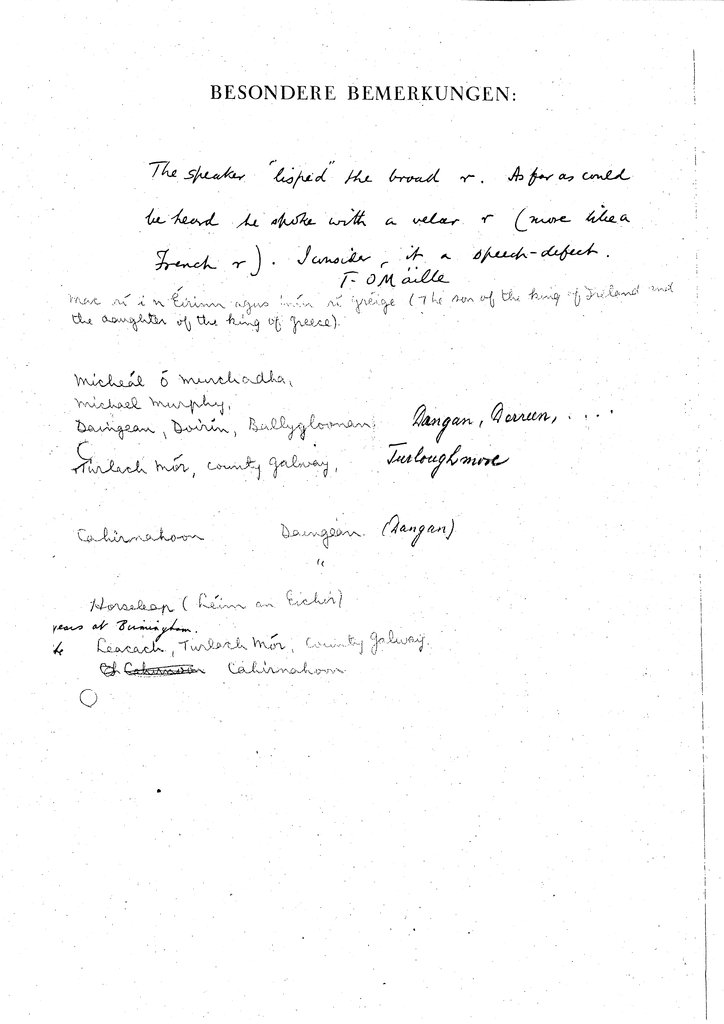 BESONDERE BEMERKUNGEN:
The speaker "lisped" the broad r. As far as could
be heard he spoke with a velar r (more like a
French r). I consider it a speech-defect.
T. O Máille
Mac rí i n Éirinn agus inín rí gréige (The son of the king of Ireland and
the daughter of the king of Greece).
Micheál Ó Murchadha,
Michael Murphy,
Daingean, Doirín, Ballygloonan, Dangan, Derreen, ....
Turlach Mór, county Galway, Turloughmore
Cahirnahoon Daingean. (Dangan)
"
Horseleap (Léim an Eich
years at Birmingham.
Leacach, Turlach Mór, County Galway.
Cahirnahoon